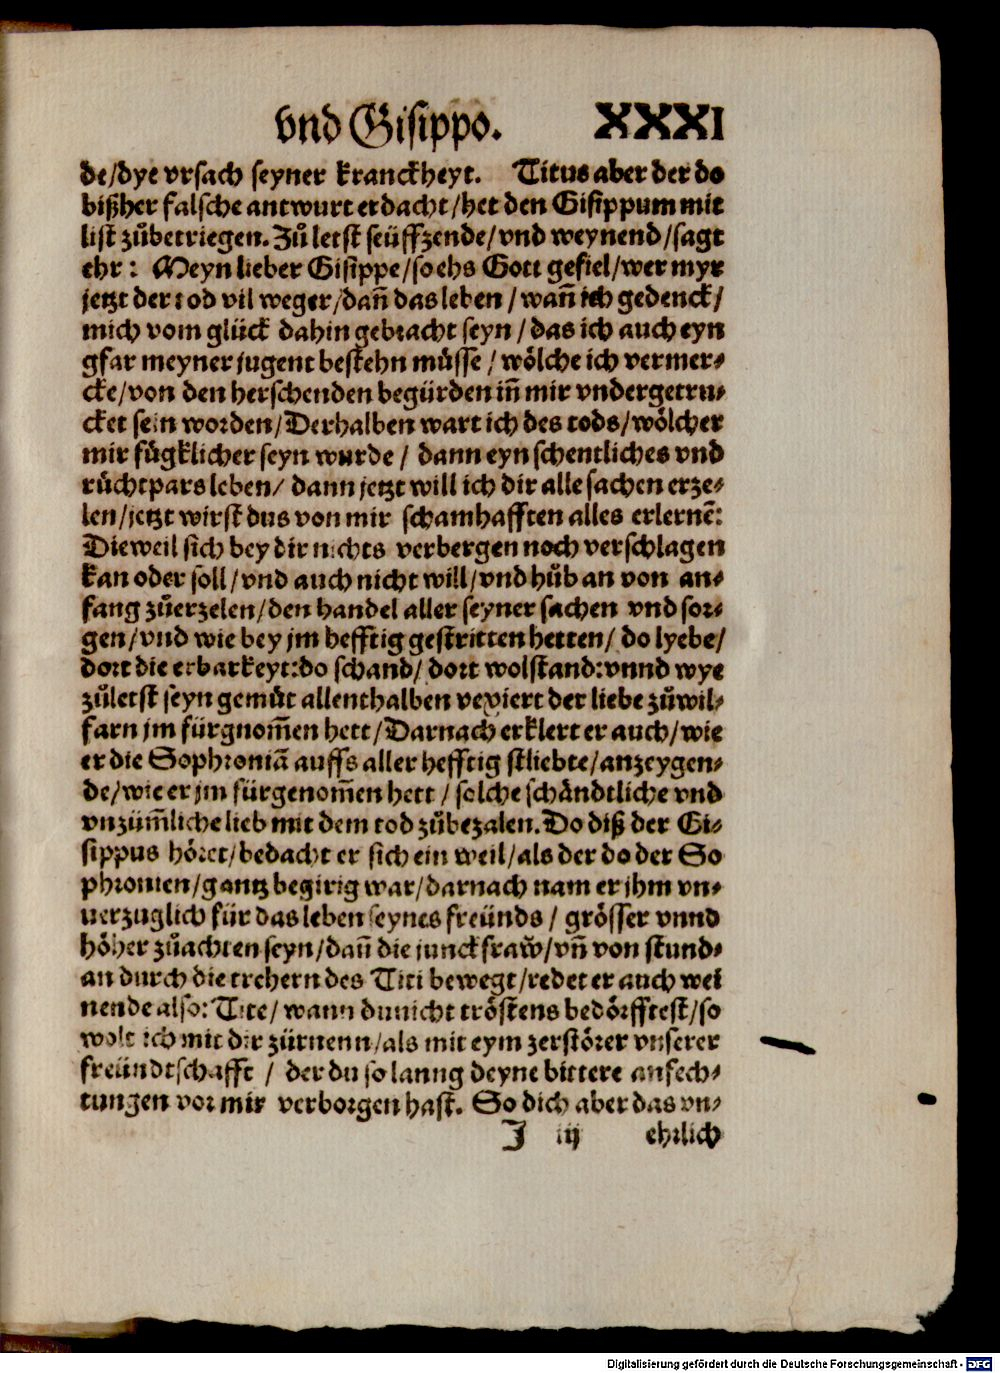 vnd Gisippo. XXXI
de/dye vrsach seyner kranckheyt. Titus aber der do
bißher falsche antwurt erdacht/het den Gisippum mit
list zůbetriegen. Zů letst seüffzende/vnd weynend/sagt
ehr: Meyn lieber Gisippe/so ehs Gott gefiel/wer myr
jetzt der tod vil weger/dañ das leben/wañ ich gedenck/
mich vom glück dahin gebracht seyn/das ich auch eyn
gfar meyner jugent bestehn müsse/wölche ich vermer⸗
cke/von den herschenden begürden iñ mir vndergetru⸗
cket sein worden/Derhalben wart ich des tods/wölcher
mir fůgklicher seyn wurde/dann eyn schentliches vnd
růchtpars leben/dann jetzt will ich dir alle sachen erze⸗
len/jetzt wirst dus von mir schamhafften alles erlernē:
Dieweil sich bey dir nichts verbergen noch verschlagen
kan oder soll/vnd auch nicht will/vnd hůb an von an⸗
fang zůerzelen/den handel aller seyner sachen vnd sor⸗
gen/vnd wie bey jm hefftig gestritten hetten/do lyebe/
dort die erbarkeyt:do schand/dort wolstand:vnnd wye
zůletst seyn gemůt allenthalben vexiert der liebe zůwil⸗
farn jm fürgnom̄en hett/Darnach erklert er auch/wie
er die Sophroniā auffs aller hefftig stliebte/anzeygen⸗
de/wie er jm fürgenom̄en hett/solche schändtliche vnd
vnzüm̄liche lieb mit dem tod zůbezalen. Do diß der Gi⸗
sippus höret/bedacht er sich ein weil/als der do der So
phronien/gantz begirig war/darnach nam er jhm vn⸗
uerzuglich für das leben seynes freünds/grösser vnnd
höher zůachten seyn/dañ die junckfraw/vñ von stund⸗
an durch die trehern des Titi bewegt/redet er auch wei
nende also: Tite/wann du nicht tröstens bedörfftest/so
wolt ich mit dir zürnenn/als mit eym zerstörer vnserer
freündtschafft/der du so lanng deyne bittere anfech⸗
tungen vor mir verborgen hast. So dich aber das vn⸗
J iij ehrlich
Digitalisierung gefördert durch die Deutsche Forschungsgemeinschaft - DFG